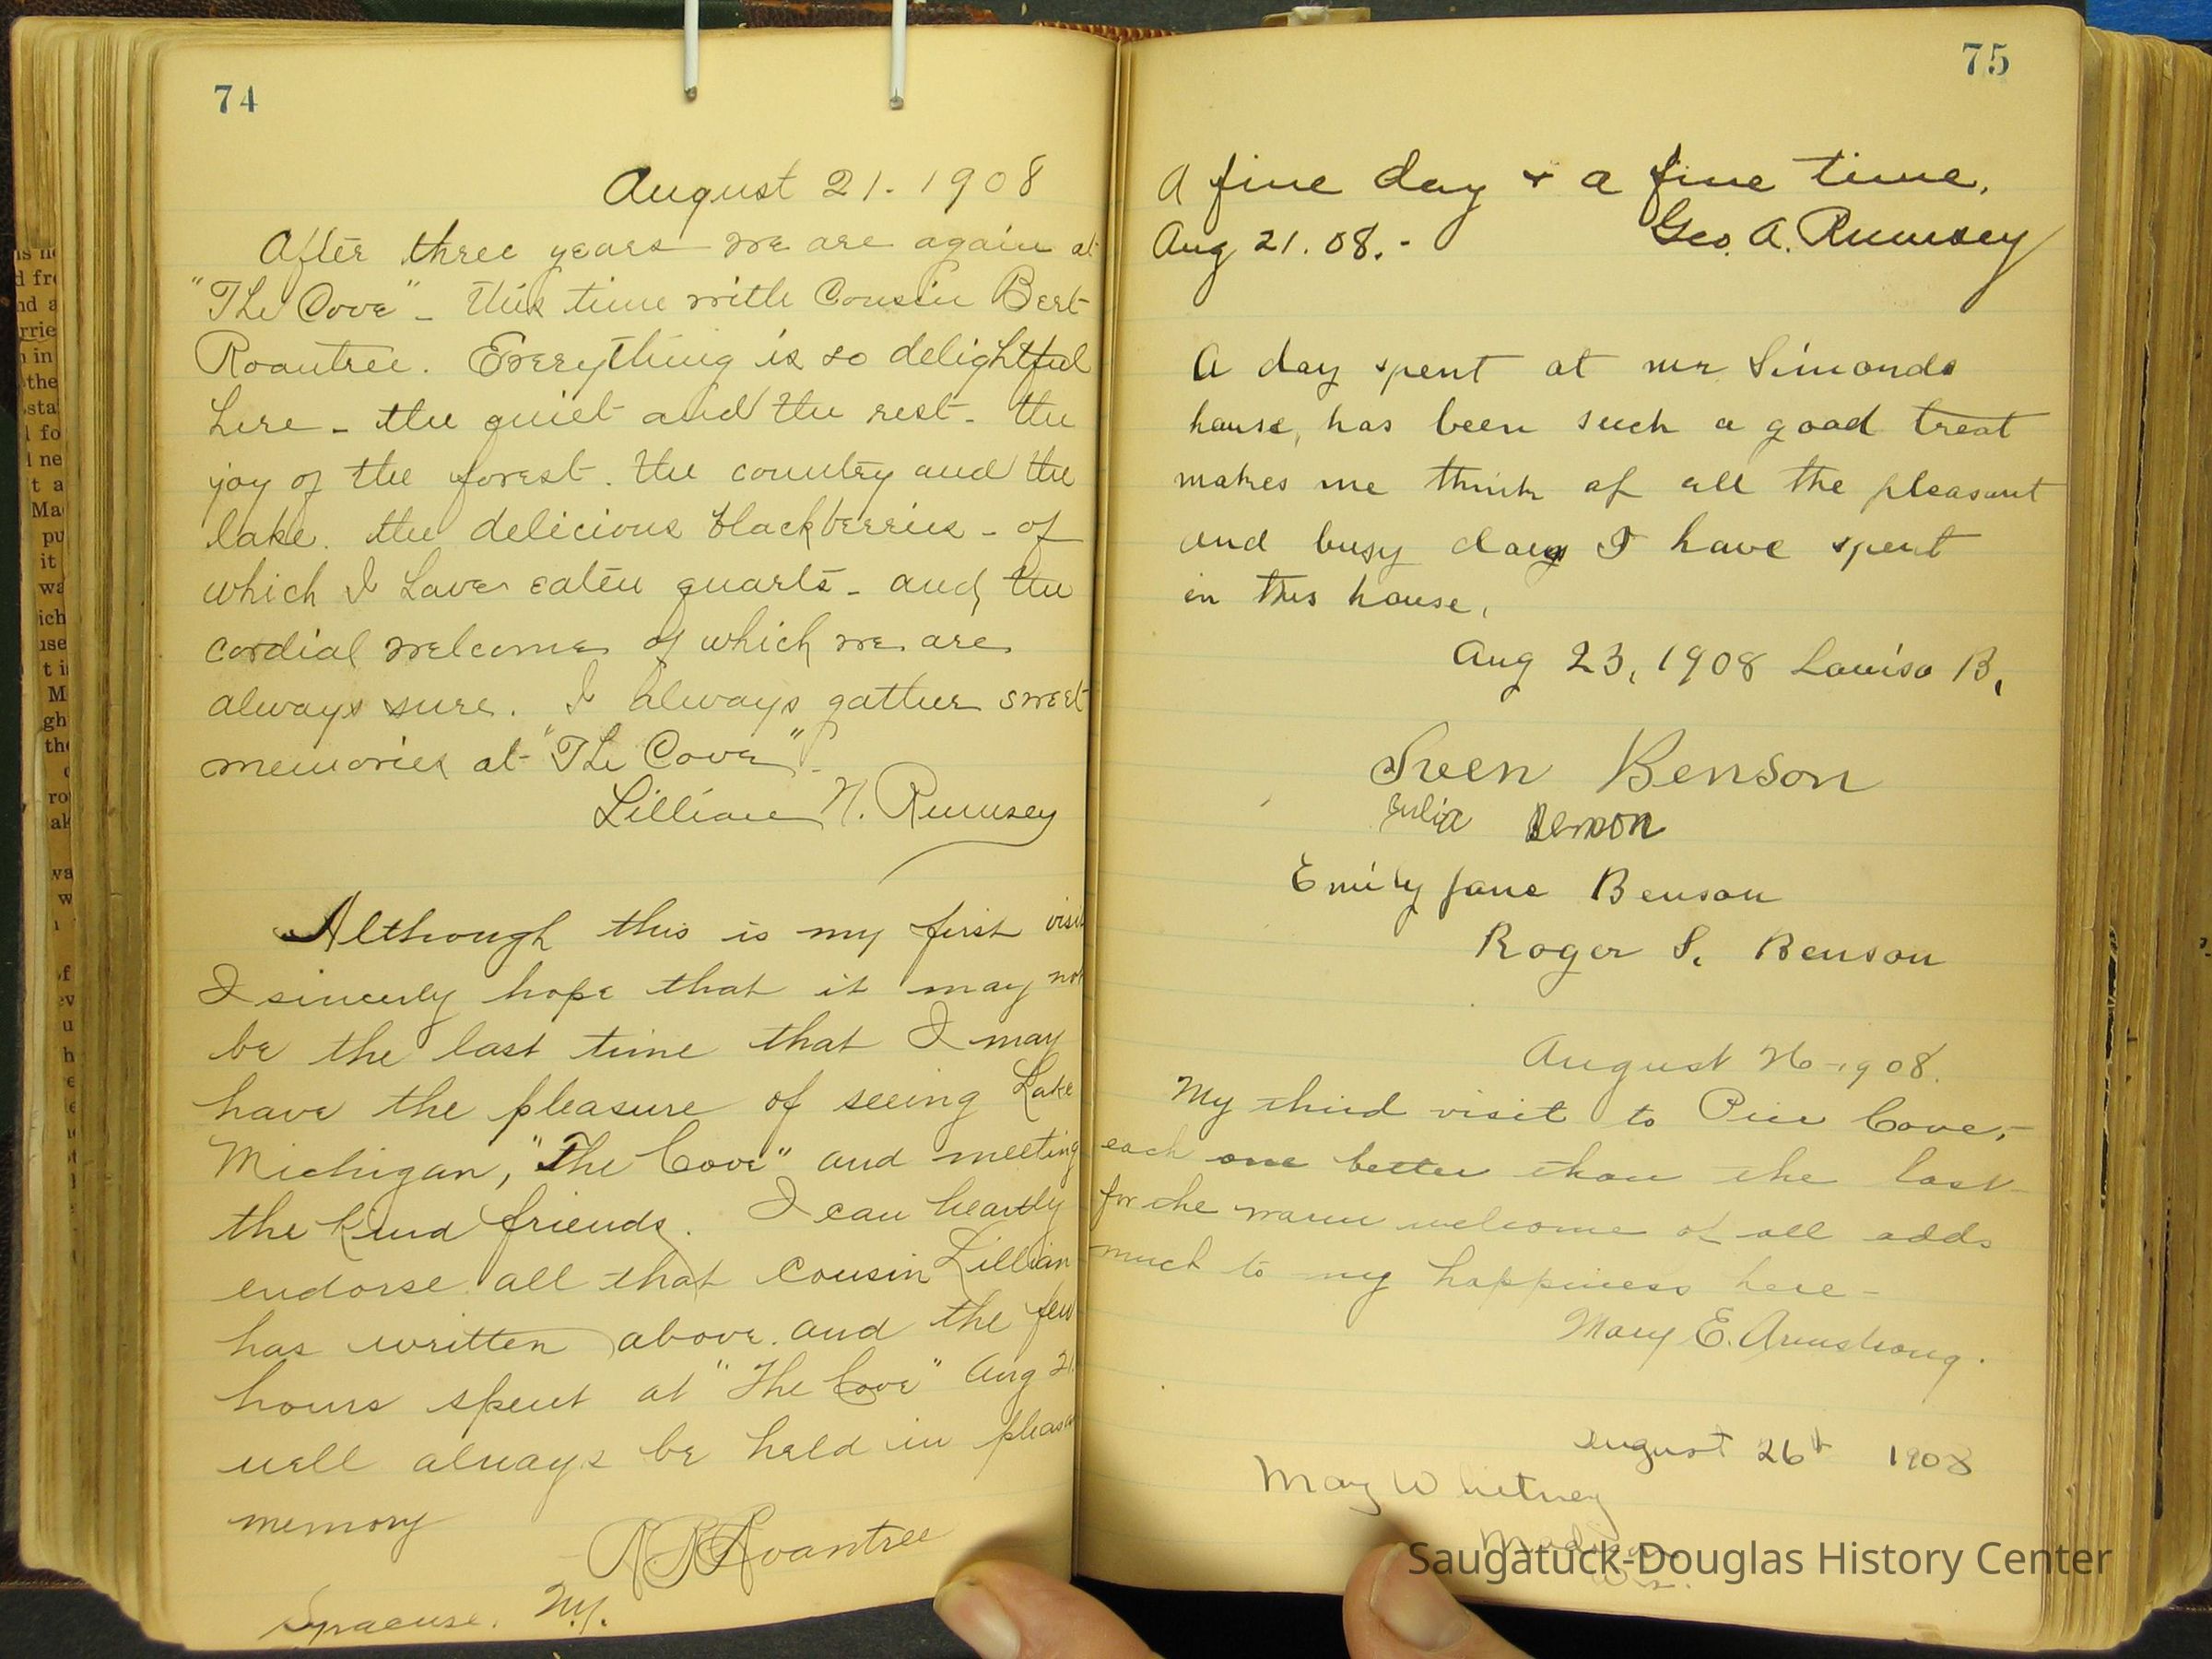 74
August 21. 1908
After three years we are again at
"The Cove" - this time with Cousin Bert
Roantree. Everything is so delightful
here - the quiet and the rest - the
joy of the forest. the country and the
lake. the delicious blackberries - of
which I have eaten quarts - and, the
cordial welcome of which we are
always sure. I always gather sweet
memories at "The Cove".
Lillian N. Rumsey
Although this is my first visit
I sincerly hope that it may not
be the last time that I may
have the pleasure of seeing Lake
Michigan, "The Cove" and meeting
the kind friends. I can heartly
endorse all that cousin Lillian
has written above. and the few
hours spent at "The Cove" Aug 21.
will always be held in pleasa
memory
Roantree
Syracuse. N.Y.
75
A fine day & a fine time.
Aug 21. 08. - Geo. A. Rumsey
A day spent at mr Simonds
house, has been such a good treat
makes me think of all the pleasant
and busy days I have spent
in this house.
Aug 23, 1908 Louisa B.
Sven Benson
Julia Benson
Emily Jane Benson
Roger S. Benson
August 26-1908.
My third visit to Pier Cove,-
each one better than the last
for the warm welcome of all adds
much to my happiness here -
Mary E. Armstrong.
August 26th 1908
May Whitney
Madison
Wis.
Saugatuck-Douglas History Center